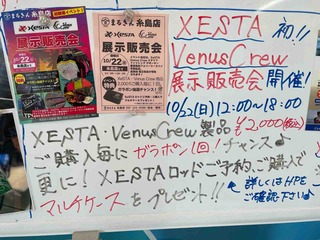 まるきん 糸島店
XESTA
展示販売会
10/22
まるきん 糸島店
XESTA
展示販売会
10/22
特典
XESTA 初!!
VenusCrew
展示販売会 開催!
10/22(日) 12:00~18:00
XESTA VenusCrew 製品 ¥2,000(税込)
ご購入毎に ガラポン1回! チャンス♪
更に! XESTAロッドご予約、ご購入で
マルチケースをプレゼント!!
詳しくはHPを
ご確認下さい♪